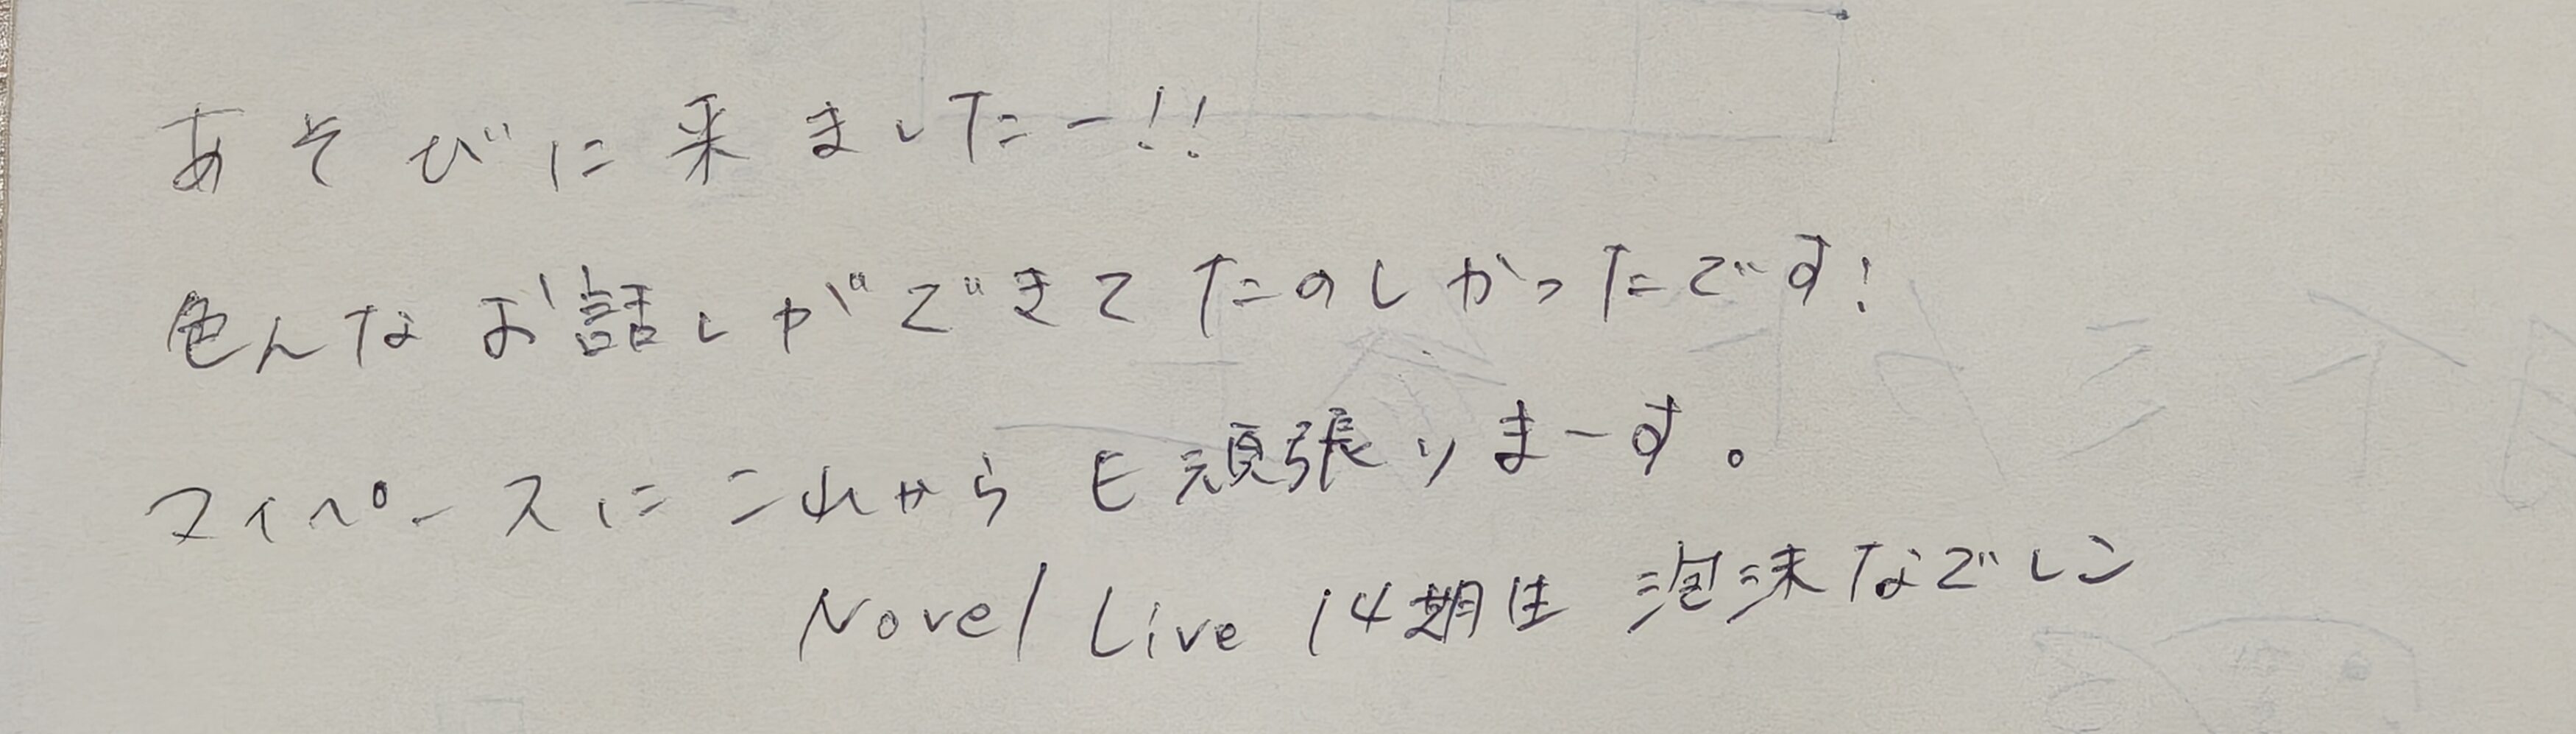 あそびに来ましたー!!
色んなお話しができてたのしかったです!
マイペースにこれからも頑張りまーす。
Novel Live 14期生 泡沫なでレン